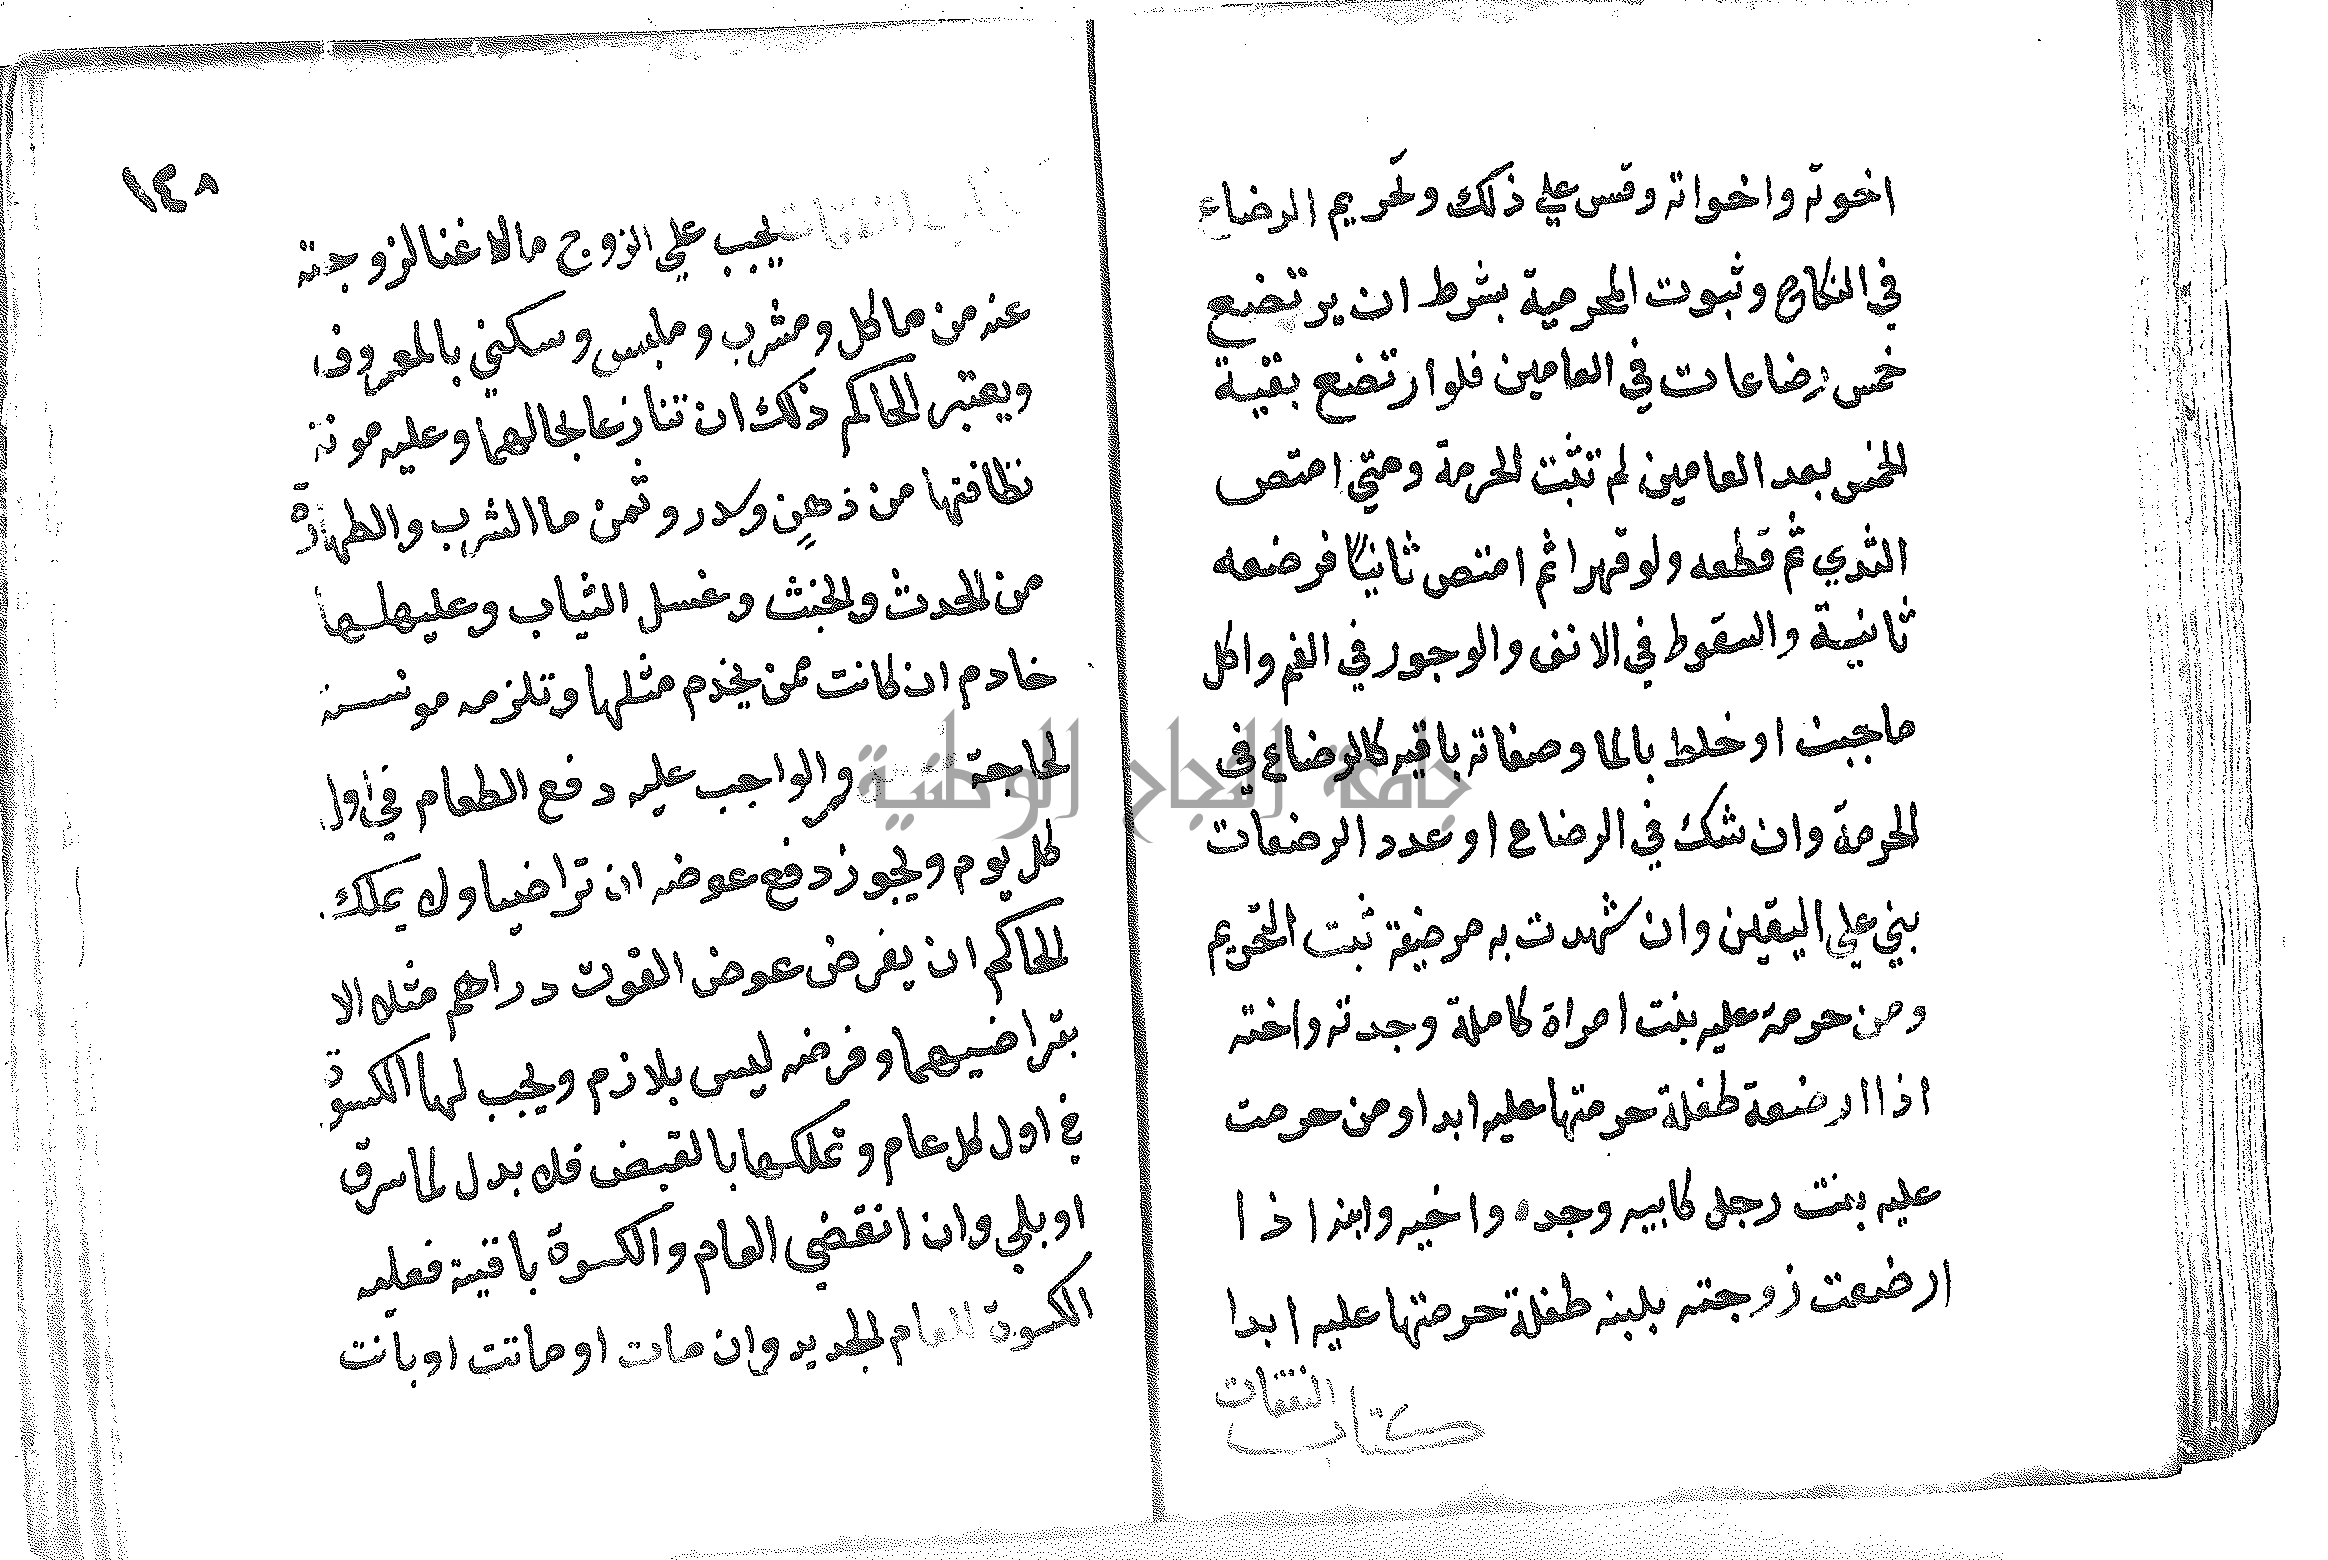 اخوته واخواته وقس علي ذلك وتحريم الرضاع
في النكاح وثبوت المحرمية بشرط ان يرتضع
خمس رضاعات في العامين فلو ارتضع بقية
الخمس بعد العامين لم تثبت الحرمة ومتي امتص
الثدي ثم قطعه ولو قهرا ثم امتص ثانيا فرضعه
ثانية والسقوط في الانف والوجور في الفم واكل
ما جبن او خلط بالما وصفاته باقيه كالرضاع في
الحرمة وان شك في الرضاع او عدد الرضعات
بني علي اليقين وان شهدت به مرضيه ثبت التحريم
ومن حرمة عليه بنت امراة كاملة وجدته واخته
اذا ارضعة طفلة حرمتها عليه ابدا ومن حرمت
عليه بنت رجل كابيه وجده واخيه وابنه اذا
ارضعت زوجته بلبنه طفلة حرمتها عليه ابدا
كتاب النفقات
١٤٨
كتاب النفقات يجب علي الزوج مالا غنا لزوجته
عنه من ماكل ومشرب وملبس وسكني بالمعروف
ويعتبر الحاكم ذلك ان تنازعا بحالهما وعليه مونة
نظافتها من ذهن وسدر وثمن ما الشرب والطهارة
من الحدث والخبث وغسل الثياب وعليه لها
خادم ان كانت ممن يخدم مثلها وتلزمه مونسة
لحاجة والواجب عليه دفع الطعام في اول
كل يوم ويجوز دفع عوضه ان تراضيا ولا يملك
الحاكم ان يفرض عوض القوت دراهم مثلا الا
بتراضيهما وفرضه ليس بلازم ويجب لها الكسوة
في اول كل عام وتملكها بالقبض فلا بدل لما سرق
او بلي وان انقضي العام والكسوة باقية فعليه
الكسوة للعام الجديد وان مات او ماتت او بانت
جامعة النجاح الوطنية